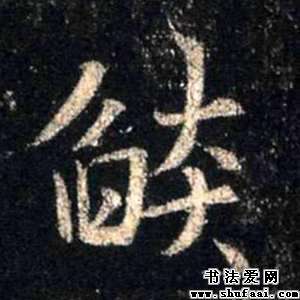 燄
书法爱网
www.shufaai.com